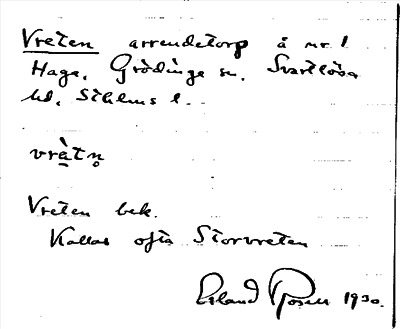 Vreten arrendetorp å nr 1
Haga, Grödinge sn. Svartlösa
hd, Sthlms l.
vrὰtn̥
Vreten bek.
Kallas ofta Storvreten
Erland Rosell 1930.